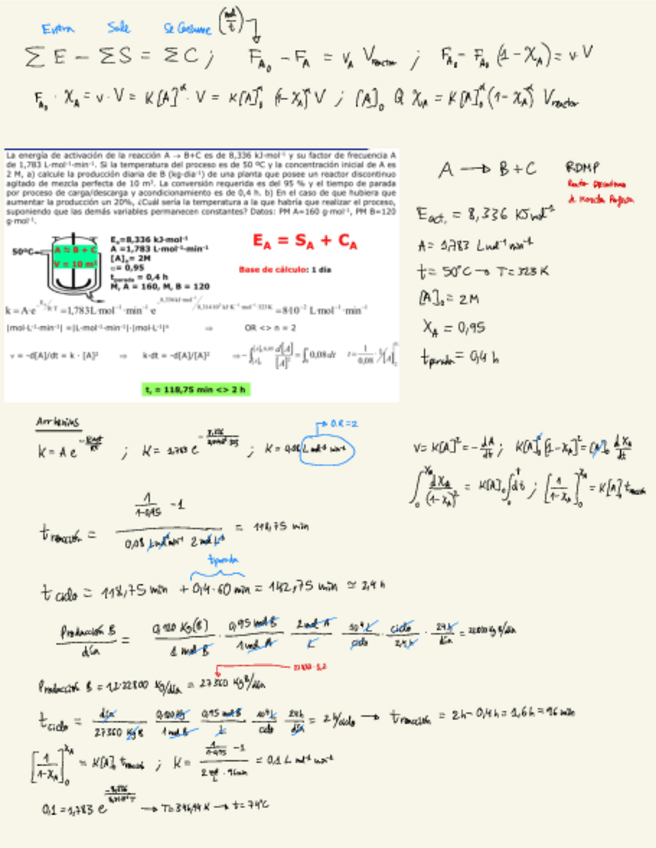 Entra Sale Se Consume (mol/t)
ΣE − ΣS = ΣC ; F_A0 − F_A = v_A V_reactor ; F_A0 − F_A0 (1 − X_A) = v·V
F_A0 · X_A = v·V = K[A]^α · V = K[A]_0^α (1−X_A)^α V ; [A]_0 Q X_A = K[A]_0^α (1−X_A)^α V_reactor
La energía de activación de la reacción A → B+C es de 8,336 kJ·mol⁻¹ y su factor de frecuencia A
de 1,783 L·mol⁻¹·min⁻¹. Si la temperatura del proceso es de 50 ºC y la concentración inicial de A es
2 M, a) calcule la producción diaria de B (kg·dia⁻¹) de una planta que posee un reactor discontinuo
agitado de mezcla perfecta de 10 m³. La conversión requerida es del 95 % y el tiempo de parada
por proceso de carga/descarga y acondicionamiento es de 0,4 h. b) En el caso de que hubiera que
aumentar la producción un 20%, ¿Cuál sería la temperatura a la que habría que realizar el proceso,
suponiendo que las demás variables permanecen constantes? Datos: PM A=160 g·mol⁻¹, PM B=120
g·mol⁻¹.
50ºC
A → B + C
V = 10 m³
E_a=8,336 kJ·mol⁻¹
A =1,783 L·mol⁻¹·min⁻¹
[A]₀= 2M
= 0,95
t_parada = 0,4 h
M, A = 160, M, B = 120
E_A = S_A + C_A
Base de cálculo: 1 día
k = A·e^(−Ea/R·T) = 1,783 L·mol⁻¹·min⁻¹·e = 8·10⁻² L·mol⁻¹·min⁻¹
|mol·L⁻¹·min⁻¹| =|L·mol⁻¹·min⁻¹|·|mol·L⁻¹|ⁿ ⇒ OR <> n = 2
v = -d[A]/dt = k · [A]² ⇒ k·dt = -d[A]/[A]² ⇒ −∫ d[A]/[A]² = ∫ 0,08 dt
t_r = 118,75 min <> 2 h
A → B + C RDMP
Reactor Discontinuo
de Mezcla Perfecta
E_act. = 8,336 KJ mol⁻¹
A = 1,783 L mol⁻¹ min⁻¹
t = 50ºC → T = 323 K
[A]₀ = 2M
X_A = 0,95
t_parada = 0,4 h
Arrhenius
O.R = 2
K = A e^(−Eact/RT) ; K = 1,783 e ; K = 0,08 L mol⁻¹ min⁻¹
v = K[A]² = −dA/dt ; K[A]₀² [1−X_A]² = [A]₀ dX_A/dt
∫₀^X_A dX_A/(1−X_A)² = K[A]₀ ∫₀^t dt ; [1/(1−X_A)]₀^X_A = K[A]₀ t_reacción
t_reacción = (1/(1−0,95) − 1) / (0,08 L mol⁻¹ min⁻¹ 2 mol L⁻¹) = 118,75 min
t_parada
t_ciclo = 118,75 min + 0,4·60 min = 142,75 min ≃ 2,4 h
Producción B/día = 0,120 Kg(B)/1 mol B · 0,95 mol B/1 mol A · 2 mol A/L · 10⁴ L/ciclo · ciclo/2,4 h · 24 h/día = 22800 Kg B/día
22800·1,2
Producción B = 1,2·22800 Kg/día = 27360 Kg B/día
t_ciclo = día/27360 Kg B · 0,120 Kg/1 mol B · 0,95 mol B/L · 10⁴ L/ciclo · 24 h/día = 2 h/ciclo → t_reacción = 2h − 0,4h = 1,6 h = 96 min
[1/(1−X_A)]₀^X_A = K[A]₀ t_reacción ; K = (1/(1−0,95) − 1) / (2 mol/L · 96 min) = 0,1 L mol⁻¹ min⁻¹
0,1 = 1,783 e → T = 346,94 K → t = 74ºC